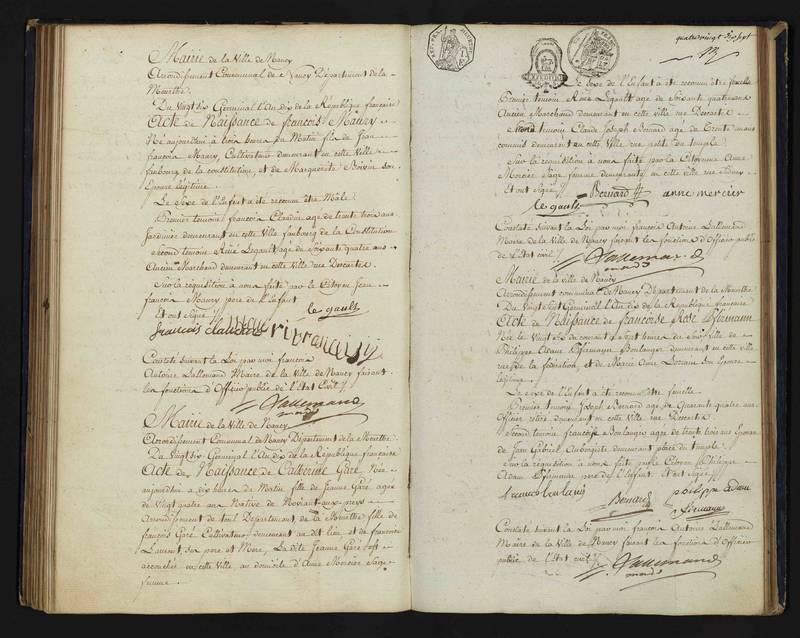 Mairie de la Ville de Nancy
Arrondissement Communal de Nancy Département de la
Meurthe.
Du Vingt six Germinal l'An dix de la République française
Acte de Naissance de françois Maury
Né aujourd'hui à trois heures du Matin fils de Jean
françois Maury, Cultivateur demeurant en cette Ville
faubourg de la constitution, et de Marguerite Boivin son
Epouse légitime.
Le Sexe de l'Enfant a été reconnu être Mâle
Premier temoin françois Claudin age de trente trois ans
Jardinier demeurant en cette Ville faubourg de la Constitution
Second temoin René Legault agé de Soixante quatre ans
Ancien Marchand demeurant en cette Ville rue Descartes.
Sur la requisition à nous faite par le Citoyen Jean
françois Maury pere de l'Enfant
Et ont Signé
le gault
francois claudin
Constaté suivant la Loi par moi françois
Antoine Lallemand Maire de la Ville de Nancy faisant
les fonctions d'Officier public de l'Etat Civil
Lallemand
Mairie de la Ville de Nancy
Arrondissement Communal de Nancy Département de la Meurthe.
Du Vingt six Germinal l'An dix de la République française
Acte de Naissance de Catherine Garé Née
aujourd'hui a dix heures du Matin fille de Jeanne Garé agée
de Vingt quatre ans Native de
arrondissement de toul Département de la Meurthe fille de
françois Garé Cultivateur demeurant au dit lieu et de françoise
Laurent ses pere et Mere, La dite Jeanne Garé
accouchée en cette Ville au domicile d'Anne Mercier Sage
femme.
quatre vingt dix sept
Le Sexe de l'Enfant a été reconnu être femelle
Premier temoin René Legault age de Soixante quatre ans
Ancien Marchand demeurant en cette ville rue Descartes
Second temoin Claude Joseph Bernard age de Trente ans
commis demeurant en cette Ville rue
Sur la requisition à nous faite par la Citoyenne Anne
Mercier Sage femme demeurante en cette ville rue
Et ont Signé
Bernard anne mercier
le gault
Constaté suivant la Loi par moi françois Antoine Lallemand
Maire de la Ville de Nancy faisant les fonctions d'Officier public
de l'Etat civil
Lallemand
Mairie de la ville de Nancy
Arrondissement communal de Nancy Département de la Meurthe
Du Vingt sept Germinal l'An dix de la République française
Acte de Naissance de françoise Rose
Née le Vingt six du courant à sept heures du Soir fille de
Philippe Adam Boulanger demeurant en cette ville
rue de la fédération, et de Marie Anne son Epouse
Légitime.
Le Sexe de l'Enfant a été reconnu être femelle
Premier temoin Joseph Bernard age de Quarante quatre ans
Officier retiré demeurant en cette Ville rue Descartes
Second temoin françoise Boulangier agée de trente trois ans Epouse
de Jean Gabriel Aubergiste demeurant place du temple.
Sur la requisition à nous faite par le Citoyen Philippe
Adam pere de l'Enfant Et ont Signé
Bernard
Constaté suivant la Loi par moi françois Antoine Lallemand
Maire de la Ville de Nancy faisant les fonctions d'Officier
public de l'Etat civil
Lallemand